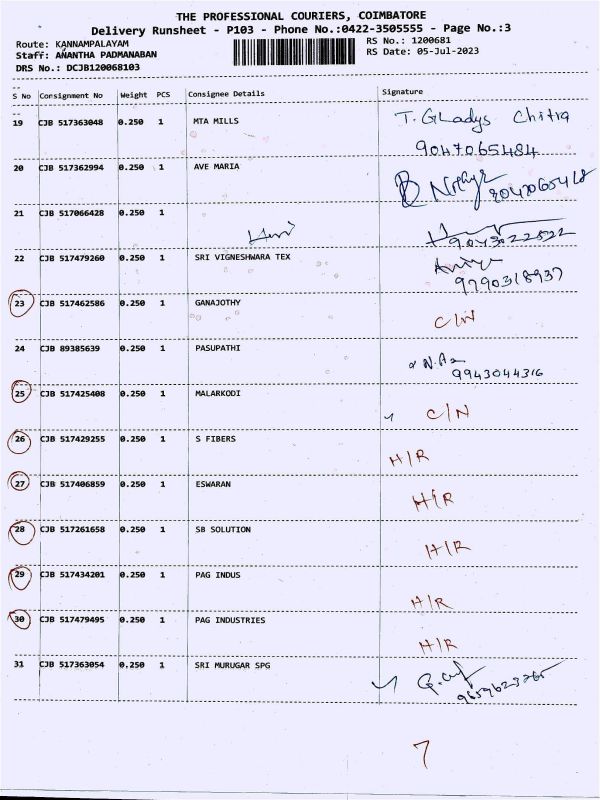 THE PROFESSIONAL COURIERS, COIMBATORE
Delivery Runsheet - P103 - Phone No.:0422-3505555 - Page No.:3
Route: KANNAMPALAYAM RS No.: 1200681
Staff: ANANTHA PADMANABAN RS Date: 05-Jul-2023
DRS No.: DCJB120068103
S No Consignment No Weight PCS Consignee Details Signature
19 CJB 517363048 0.250 1 MTA MILLS T. Gladys Chitra
9047065484
20 CJB 517362994 0.250 1 AVE MARIA
21 CJB 517066428 0.250 1
9043022522
22 CJB 517479260 0.250 1 SRI VIGNESHWARA TEX
9790318937
23 CJB 517462586 0.250 1 GANAJOTHY C/N
24 CJB 89385639 0.250 1 PASUPATHI
9943044316
25 CJB 517425408 0.250 1 MALARKODI C/N
26 CJB 517429255 0.250 1 S FIBERS H/R
27 CJB 517406859 0.250 1 ESWARAN H/R
28 CJB 517261658 0.250 1 SB SOLUTION H/R
29 CJB 517434201 0.250 1 PAG INDUS H/R
30 CJB 517479495 0.250 1 PAG INDUSTRIES H/R
31 CJB 517363054 0.250 1 SRI MURUGAR SPG
7